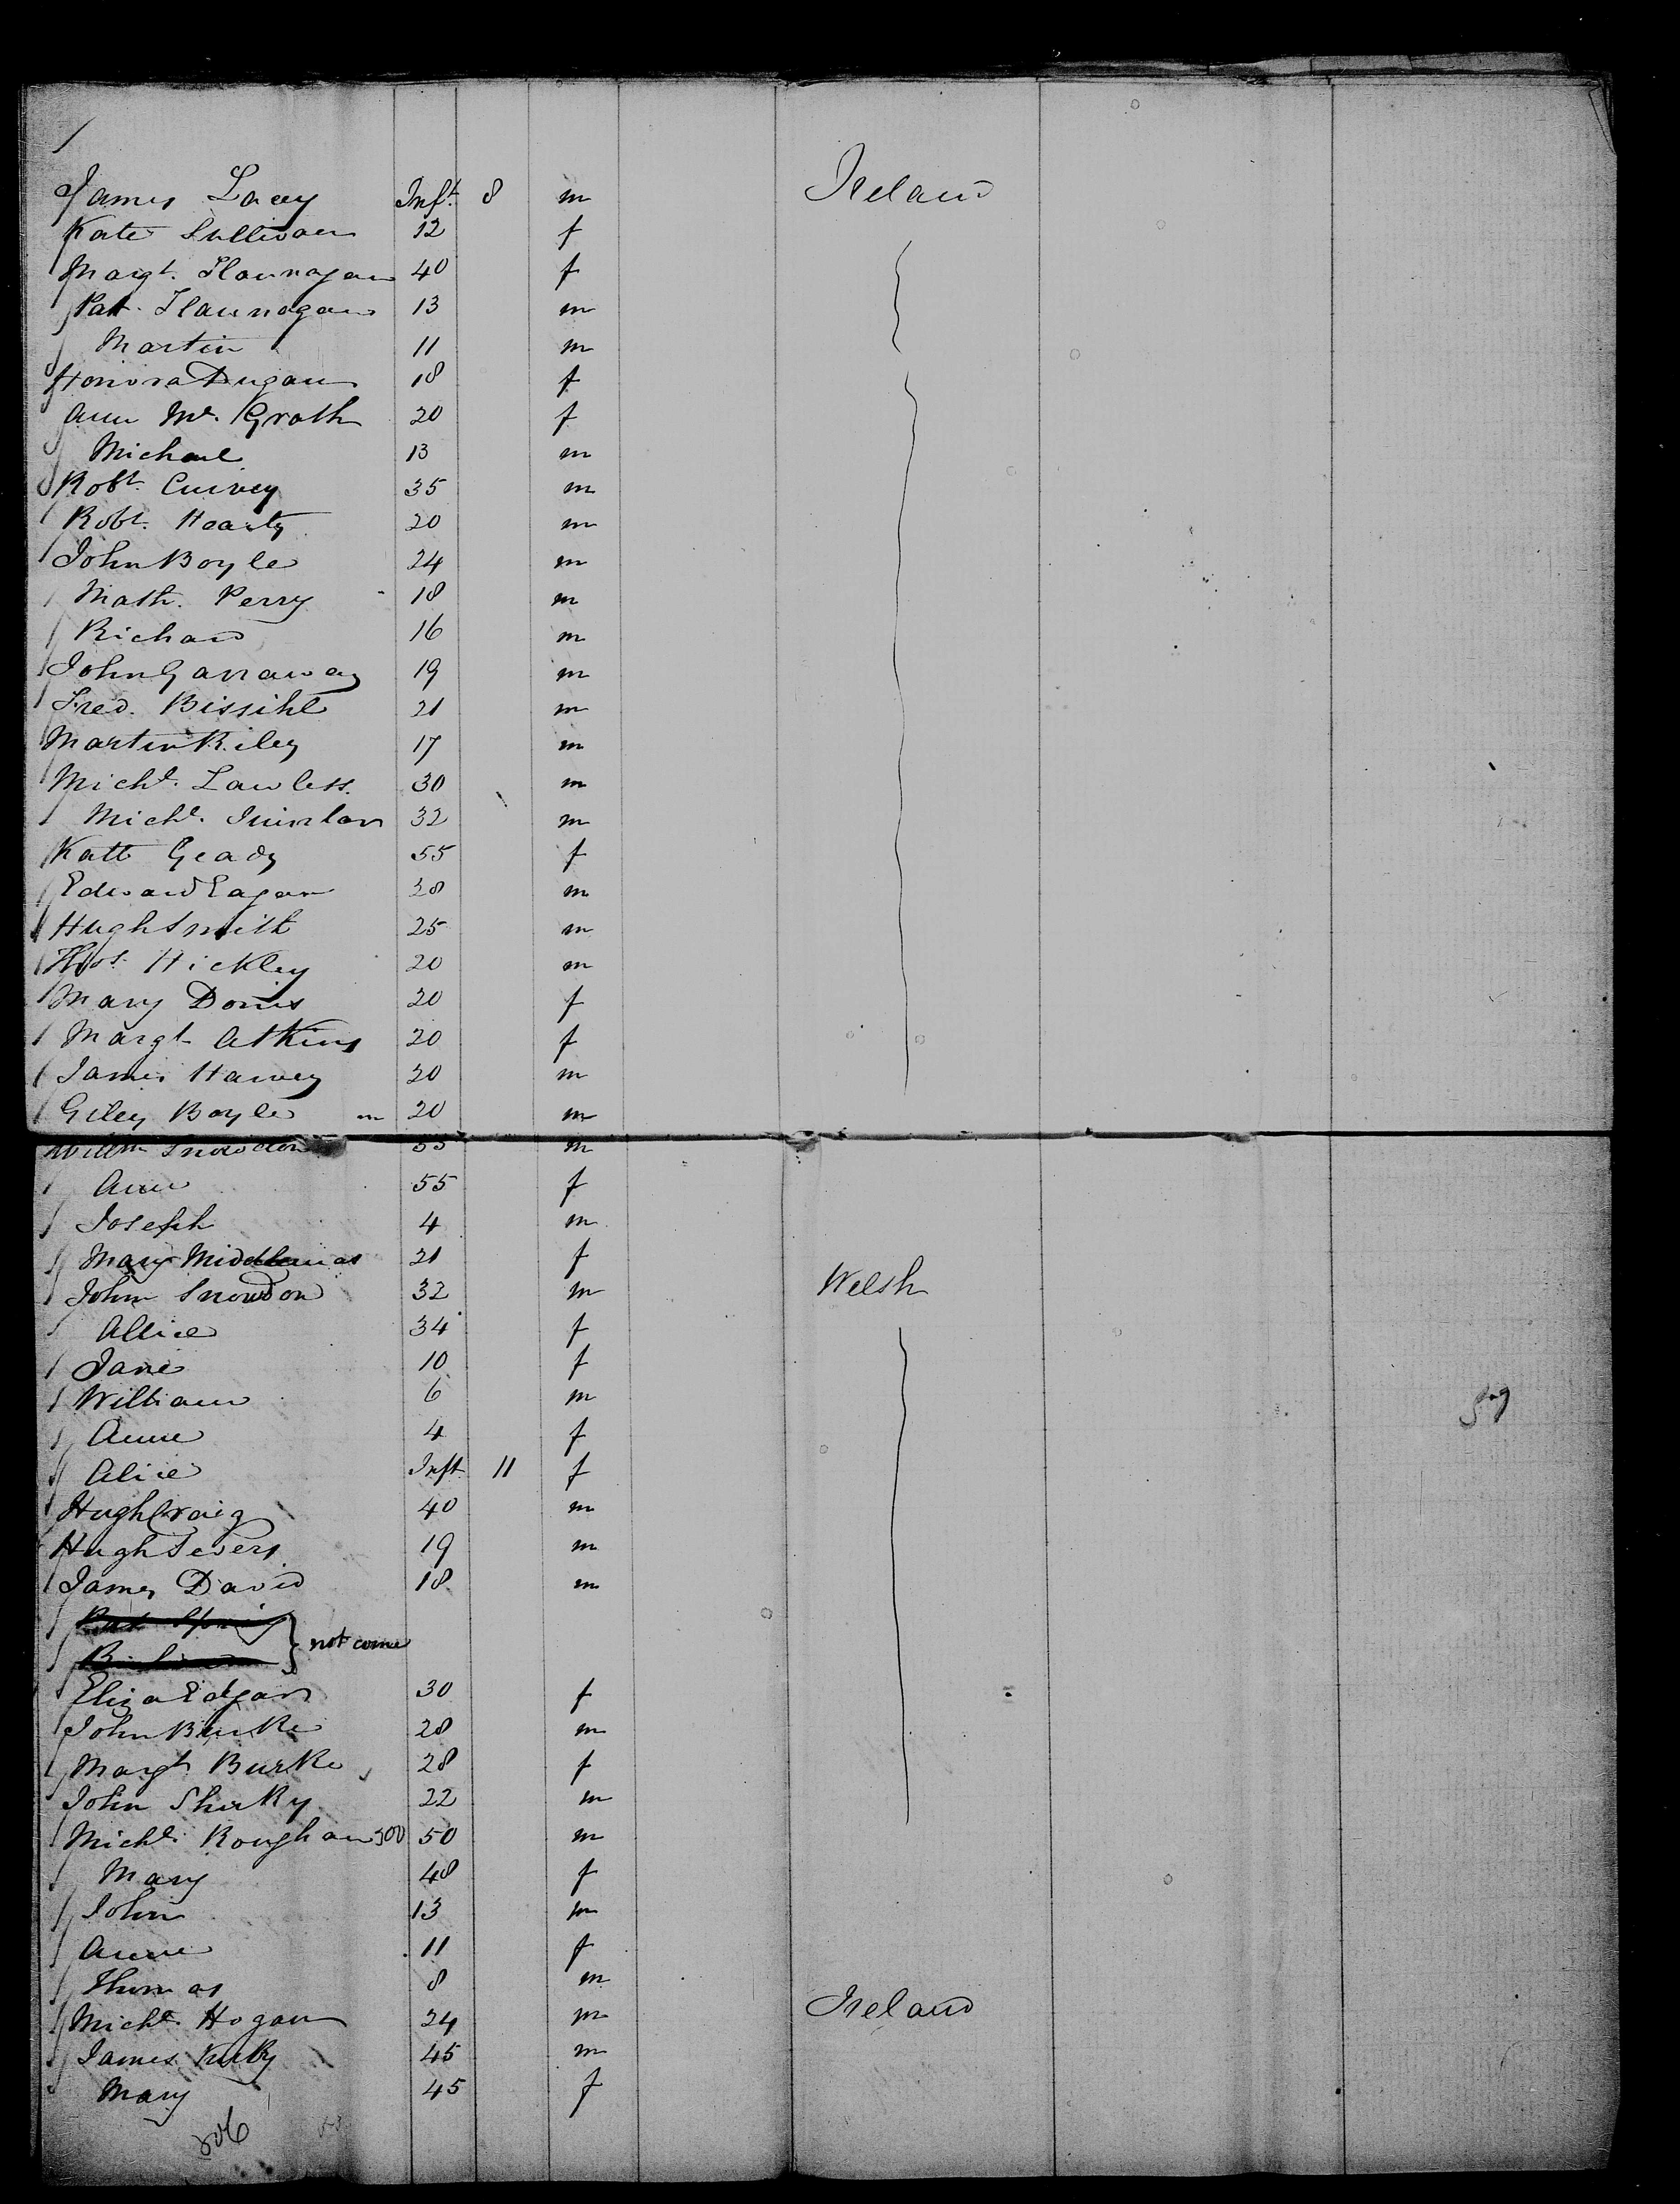 James Lacey Inft. 8 m Ireland
Kate Sullivan 12 f
Margt. Flannagan 40 f
Pat. Flannagan 13 m
Martin 11 m
Honora Dugan 18 f
Ann Mc. Grath 20 f
Michael 13 m
Robt. 35 m
Robt. Hearty 20 m
John Boyle 24 m
Math. Perry 18 m
Richard 16 m
John Garraway 19 m
Fred. 21 m
Martin Riley 17 m
Michl. Lawless. 30 m
Michl. Quinlan 32 m
Kate Geady 55 f
Edward Eagan 28 m
Hugh Smith 25 m
Thos. Hickley 20 m
Mary 20 f
Margt. Atkins 20 f
James Harvey 20 m
Giley Boyle m 20 m
Willm Snowdon 55 m
Ann 55 f
Joseph 4 m
Mary Middlemas 21 f
John Snowdon 32 m Welsh
Allice 34 f
Jane 10 f
William 6 m
Anne 4 f
Alice Inft. 11 f
Hugh Craig 40 m
Hugh Severs 19 m
James David 18 m
not come
Eliza Edgar 30 f
John Burke 28 m
Margt. Burke 28 f
John Sharky 22 m
Michl. Roughan 300 50 m
Mary 48 f
John 13 m
Anne 11 f
Thomas 8 m
Michl. Hogan 24 m Ireland
James 45 m
Mary 45 f